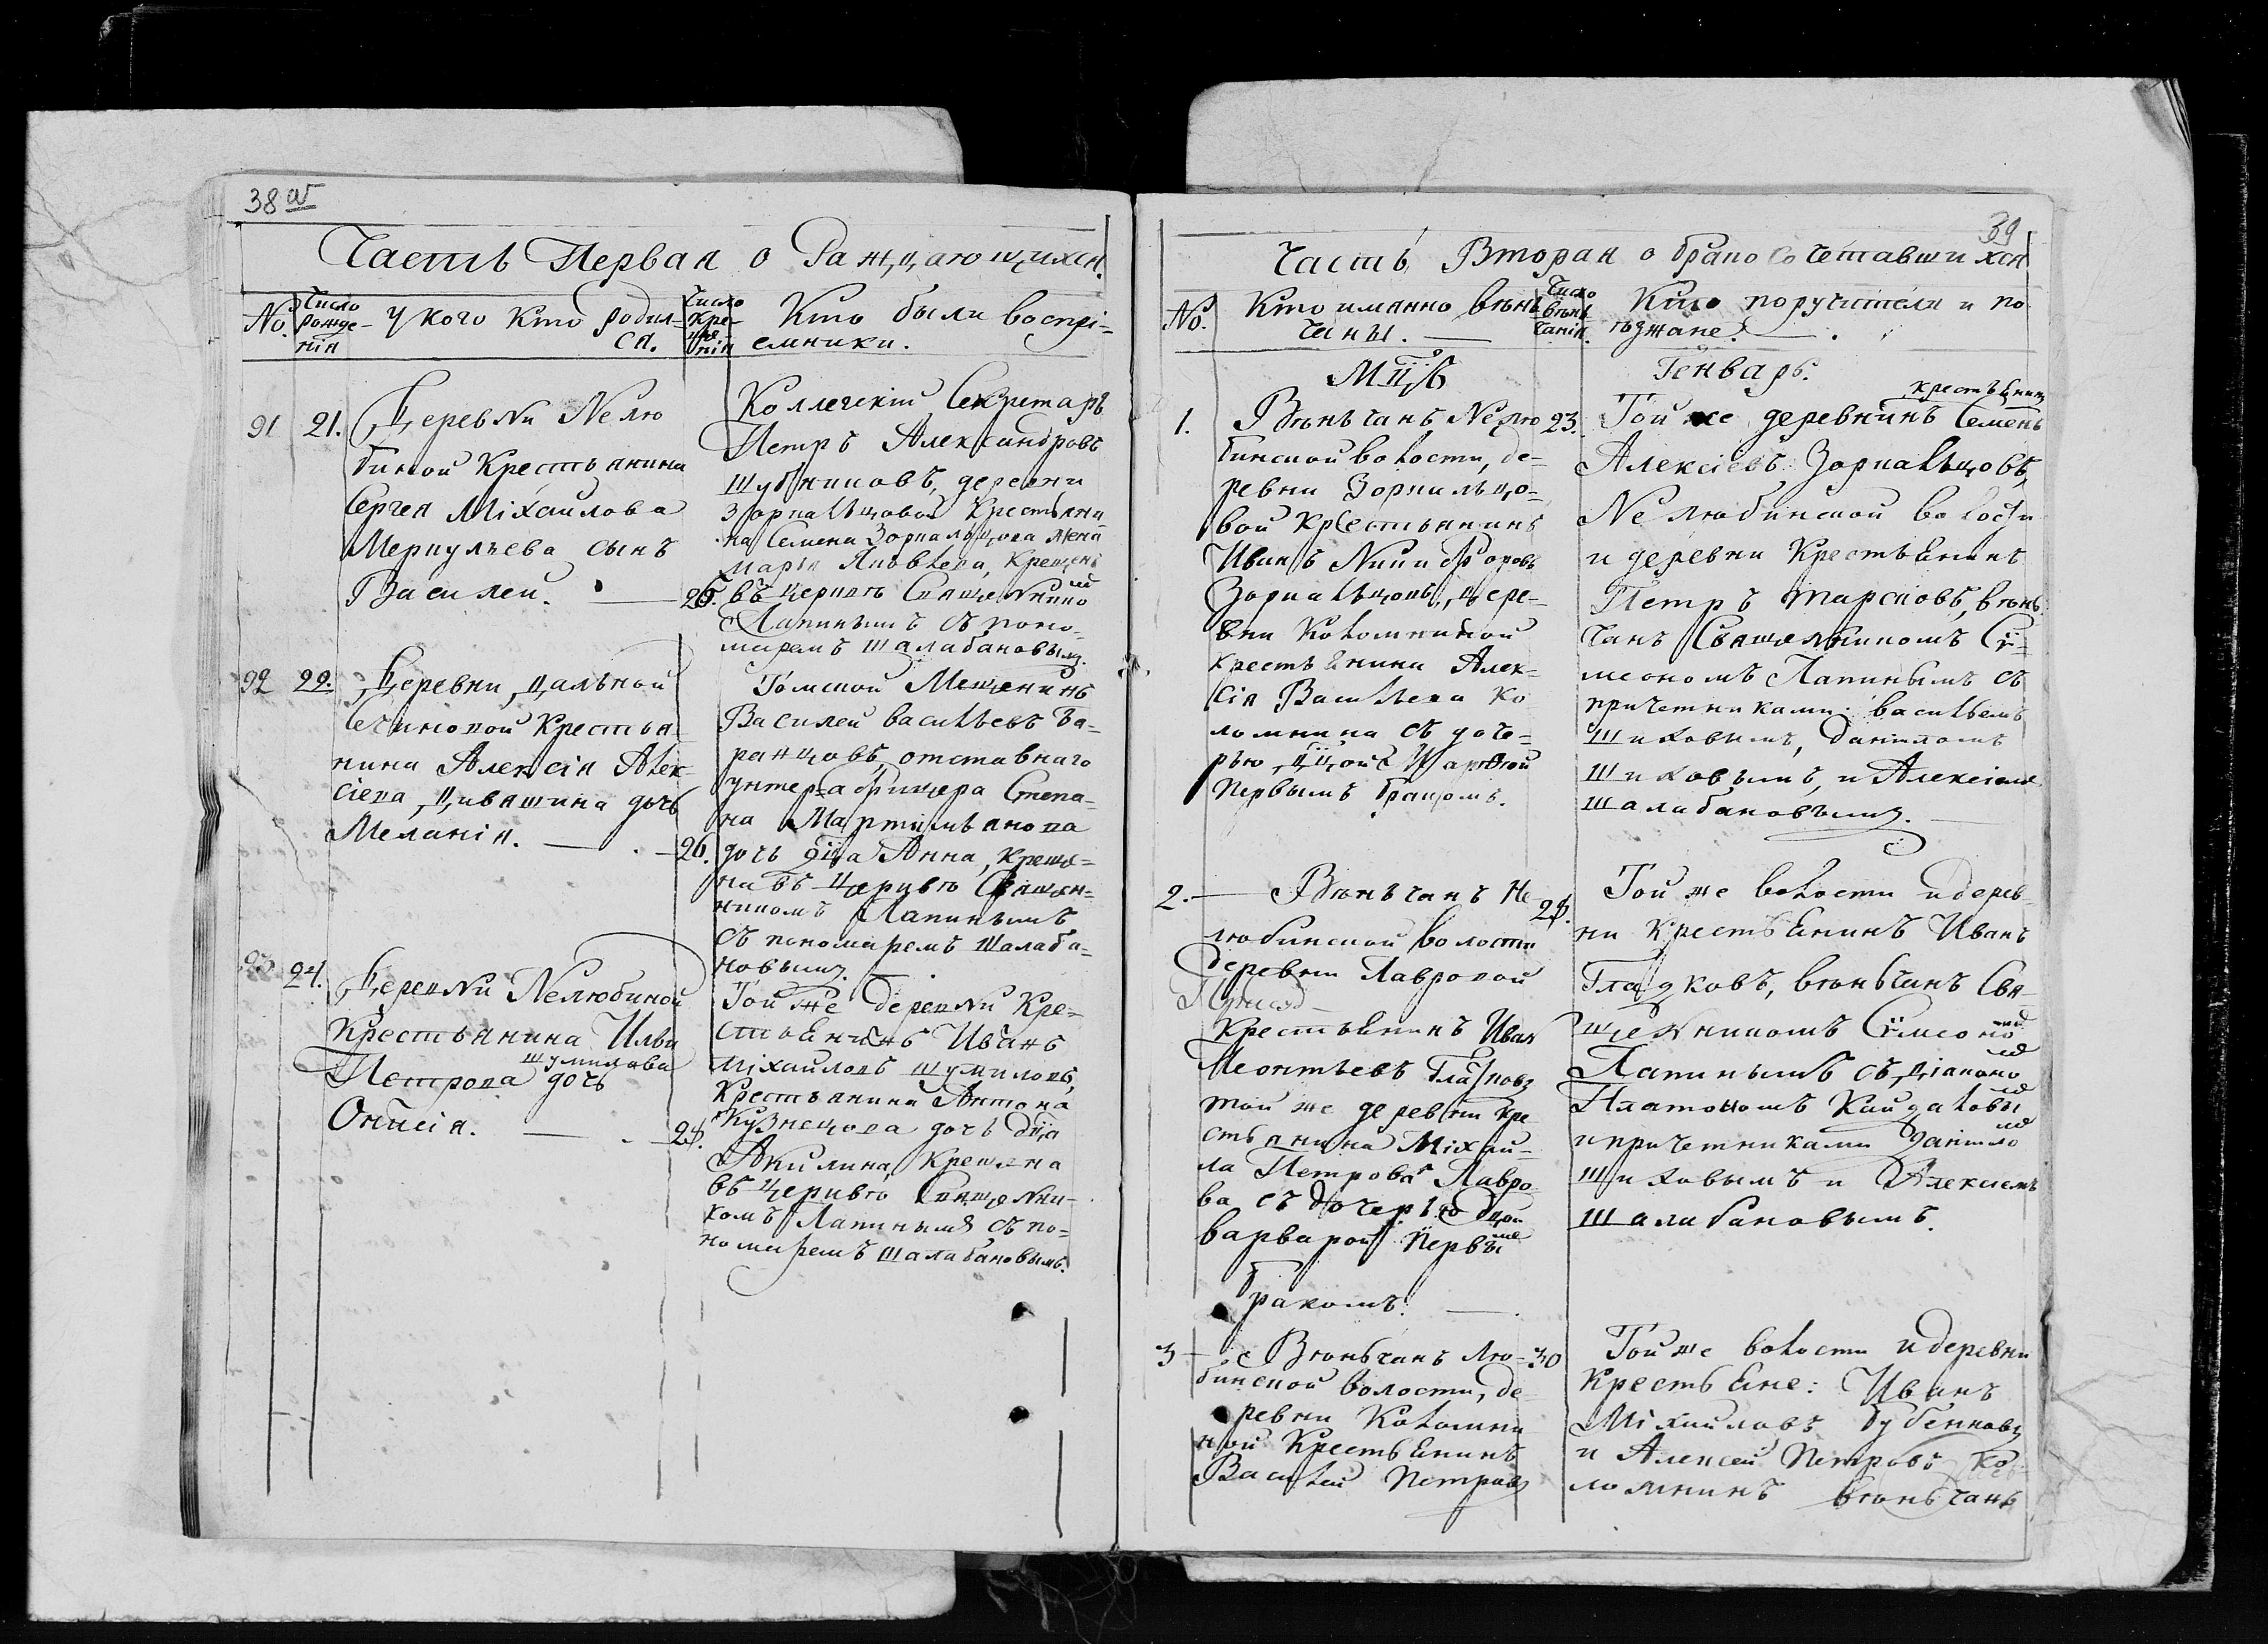 38 об
Часть Первая о Раждающихся.
No.
Число рожде-нія
У кого кто родил-ся.
Число кре-ще-нія
Кто были воспрі-емники.
91
21.
Деревни Нелю
биной Крестьянина
Сергея Міхаилова
Меркульева сынъ
Василеи.
26.
Коллегскій Секретарь
Петръ Александровъ
Шубниковъ, деревни
Зоркальцовой Крестьяни
на Семена Зоркальцова жена
Марія Яковлева, Крещенъ
въ церквѣ Священникомъ
Лапинымъ съ поно-
маремъ Шалабановымъ.
92
22.
Деревни Дальной
Крестья
нина Алексія Алек-
сіева Дивашина дочь
Меланія.
26.
Томской Мещенинъ
Василеи Васильевъ Ба-
ранцовъ, отставнаго
унтеръ афицера Степа-
на Мартимьянова
дочь дѣца Анна, Креще-
на въ Церквѣ Священ-
никомъ Лапинымъ
съ пономаремъ Шалаба-
новымъ.
93
24.
Деревни Нелюбиной
Крестьянина Ильи
Петрова Шумилова дочь
Онисія.
28.
Той же деревни Кре-
стьЕнинъ Иванъ
Міхаиловъ Шумиловъ,
Крестьянина Антона
Кузнецова дочь дѣца
Акилина, Крещена
въ Церквѣ Священни-
комъ Лапинымъ съ по-
номаремъ Шалабановымъ.
39
Часть Вторая о бракосочетавшихся
No.
Кто иманно вѣнь-чаны.
Число вѣнь-чанія.
Кто поручители и по ѣзжане.
Мцъ
Генварь.
1.
Вѣньчанъ Нелю
бинской волости, де-
ревни Зоркальцо-
вой Крестьянинъ
Иванъ Никифоровъ
Зоркальцовъ, дере-
вни Коломниной
крестьЕнина Алек-
сія Васильева Ко
ломнина съ доче-
рью дѣцой Марѳой
Первымъ бракомъ.
23.
Той же деревни крестьЕнинъ Семенъ
Алексіевъ Зоркальцовъ,
Нелюбинской волости
и деревни КрестьЕнинъ
Петръ Марсковъ, вѣнь
чанъ Священникомъ Сі-
меономъ Лапинымъ съ
причетниками: Васильемъ
Шиховымъ, Даніиломъ
Шиховымъ, и Алексіемъ
Шалабановымъ.
2.
Вѣньчанъ Не
любинской волости
деревни Лавровой
КрестьЕнинъ Иванъ
Леонтьевъ Глатковъ
той же деревни кре
стьянина Міхаи-
ла Петрова Лавро-
ва съ дочерью дцой
варварой Первымъ
бракомъ.
28.
Той же волости и дерев
ни КрестьЕнинъ Иванъ
Гладковъ, вѣньчанъ Свя-
щенникомъ Сімеономъ
Лапинымъ съ діакономъ
Платономъ Кайдаловымъ
и причетниками Даніиломъ
Шиховымъ и Алексіемъ
Шалабановымъ.
3
Вѣньчанъ Лю-
бинской волости, де-
ревни Коломни
ной КрестьЕнинъ
Василей Петровъ
30
Той же волости и деревни
КрестьЕне: Иванъ
Міхаиловъ Бубенновъ
и Алексеи Петровъ Ко-
ломнинъ вѣньчанъ